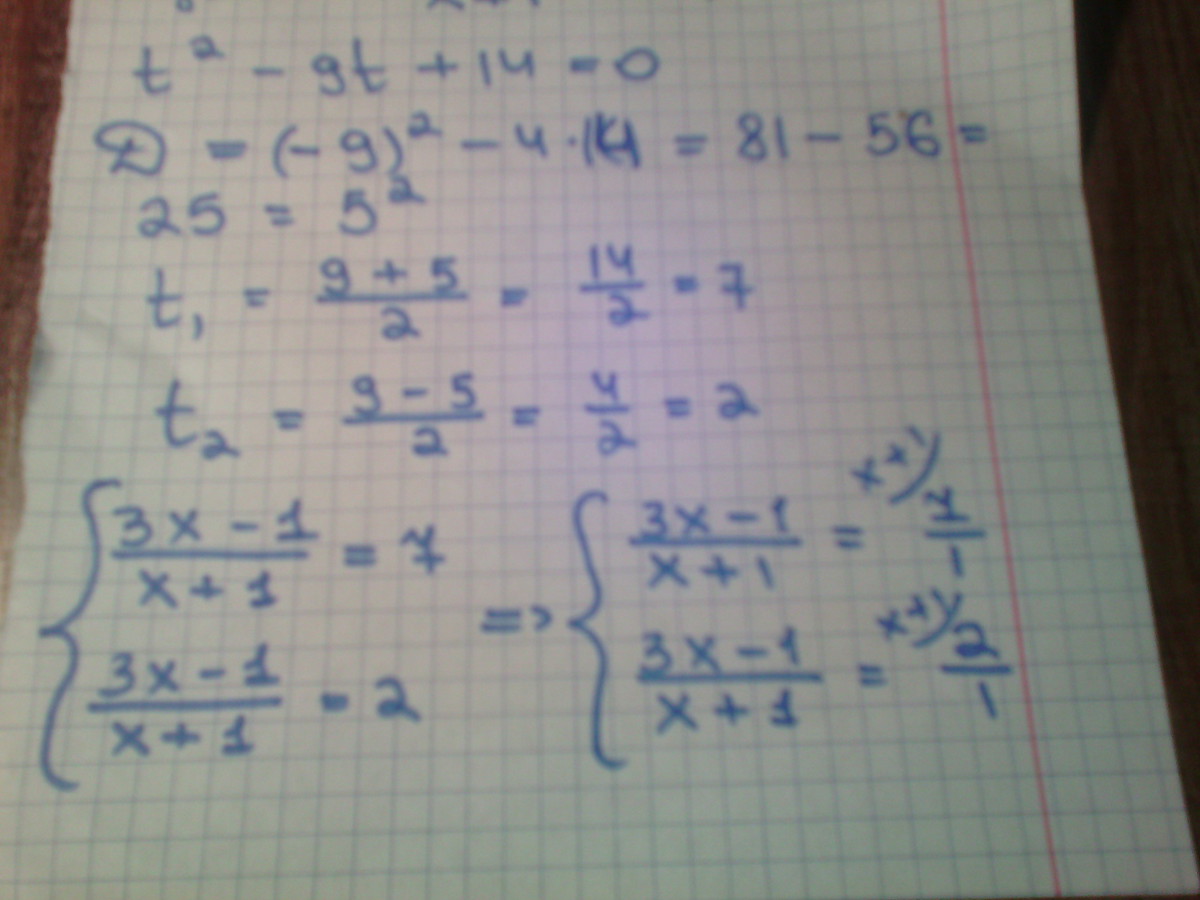 t² - 9t + 14 = 0
D = (-9)² - 4 · 14 = 81 - 56 =
25 = 5²
t₁ = (9 + 5)/2 = 14/2 = 7
t₂ = (9 - 5)/2 = 4/2 = 2
{ (3x - 1)/(x + 1) = 7 => { (3x - 1)/(x + 1) = ˣ⁺¹⁾ 7/1
(3x - 1)/(x + 1) = 2 (3x - 1)/(x + 1) = ˣ⁺¹⁾ 2/1